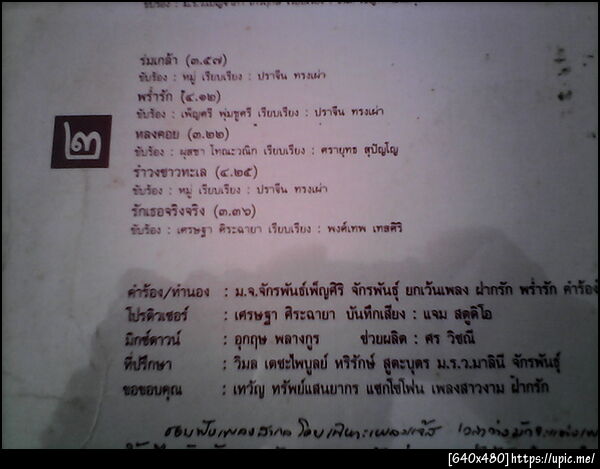 ร่มเกล้า (๓.๕๗)
ขับร้อง : หมู่ เรียบเรียง : ปราจีน ทรงเผ่า
พร่ำรัก (๔.๑๒)
ขับร้อง : เพ็ญศรี พุ่มชูศรี เรียบเรียง : ปราจีน ทรงเผ่า
หลงคอย (๓.๒๒)
ขับร้อง : ผุสชา โทณะวณิก เรียบเรียง : ศรายุทธ สุปัญโญ
๒
รำวงชาวทะเล (๔.๒๕)
ขับร้อง : หมู่ เรียบเรียง : ปราจีน ทรงเผ่า
รักเธอจริงจริง (๓.๓๖)
ขับร้อง : เศรษฐา ศิระฉายา เรียบเรียง : พงศ์เทพ เทสศิริ
คำร้อง/ทำนอง : ม.จ.จักรพันธ์เพ็ญศิริ จักรพันธุ์ ยกเว้นเพลง ฝากรัก พร่ำรัก คำร้อง
โปรดิวเซอร์ : เศรษฐา ศิระฉายา บันทึกเสียง : แจม สตูดิโอ
มิกซ์ดาวน์ : อุกฤษ พลางกูร ช่วยผลิต : ศร วิชณี
ที่ปรึกษา : วิมล เตชะไพบูลย์ หริรักษ์ สูตะบุตร ม.ร.ว.มาลินี จักรพันธุ์
ขอขอบคุณ : เทวัญ ทรัพย์แสนยากร แซกโซโฟน เพลงสาวงาม ฝากรัก
[640x480]https://upic.me/